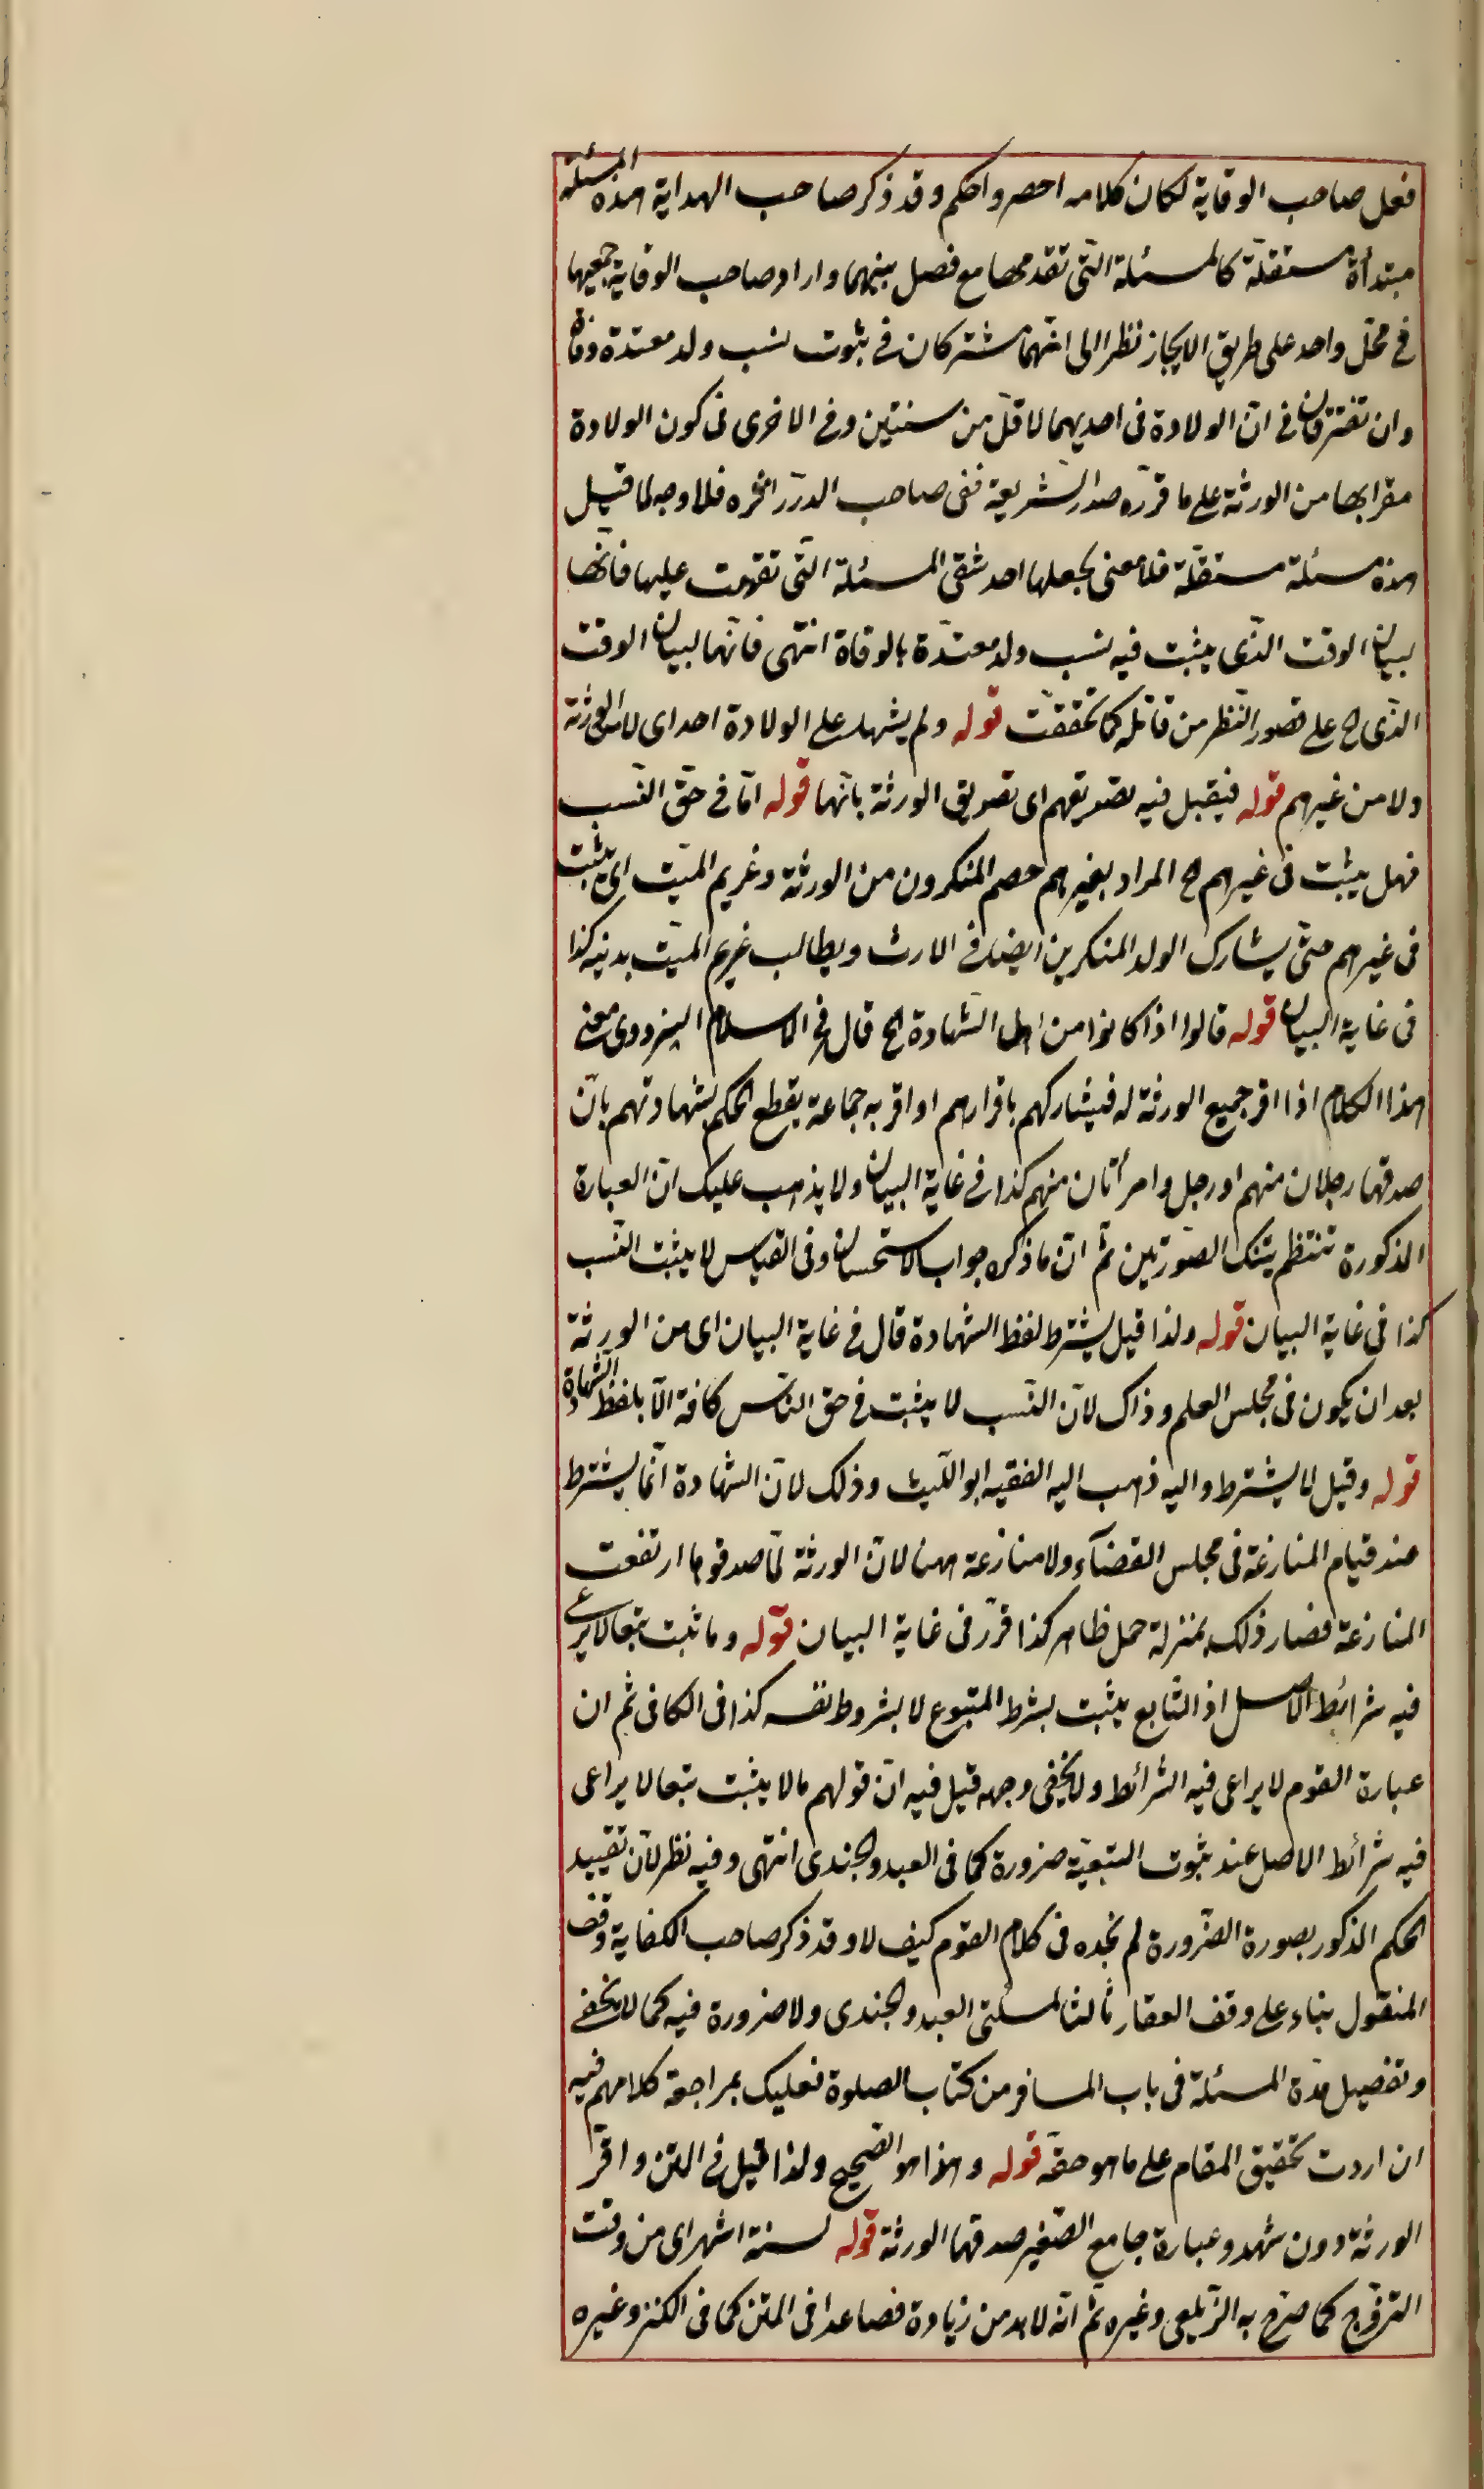 فعل صاحب الوقاية لكان كلامه احصر واحكم وقد ذكر صاحب الهداية هذه المسئلة
مبتدأة مستقلة كالمسئلة التى تقدمها مع فصل بينهما واراد صاحب الوقاية جمعيهما
فى محل واحد على طريق الايجاز نظرا الى انهما مشتركان فى ثبوت نسب ولد معتدة وفاة
وان تفترقان فى ان الولادة فى احديهما لاقل من سنتين وفى الاخرى فى كون الولادة
مقرا بها من الورثة على ما قرره صدر الشريعة ففى صاحب الدرر اثره فلا وجه لما قيل
هذه مسئلة مستقلة فلا معنى لجعلها احد شقى المسئلة التى تقدمت عليها فانها
لبيان الوقت الذى يثبت فيه نسب ولد معتدة بالوفاة انتهى فانهما لبيان الوقت
الذى الخ على قصور النظر من قائله كما تحققت قوله ولم يشهد على الولادة احد اى لا من الورثة
ولا من غيرهم قوله فيقبل فيه تصديقهم اى تصديق الورثة بانها قوله اما فى حق النسب
فهل يثبت فى غيرهم الخ المراد بغيرهم حصم المنكرون من الورثة وغريم الميت اى يثبت
فى غيرهم حتى يشارك الولد المنكرين ايضا فى الارث ويطالب غريم الميت بدينه كذا
فى غاية البيان قوله قالوا اذا كانوا من اهل الشهادة الخ قال فخر الاسلام البزدوى معنى
هذا الكلام اذا اقر جميع الورثة له فيشاركهم باقرارهم او اقر به جماعة يقطع الحكم بشهادتهم بان
صدقها رجلان منهم او رجل وامرأتان منهم كذا فى غاية البيان ولا يذهب عليك ان العبارة
المذكورة تنتظم يتنك الصورتين ثم ان ما ذكره جواب الاستحسان وفى القياس لا يثبت النسب
كذا فى غاية البيان قوله ولذا قيل يشترط لفظ الشهادة قال فى غاية البيان اى من الورثة
بعد ان يكون فى مجلس العلم وذاك لان النسب لا يثبت فى حق الناس كافة الا بلفظ الشهادة
قوله وقيل لا يشترط واليه ذهب اليه الفقيه ابو الليث وذلك لان الشهادة انما يشترط
عند قيام المنازعة فى مجلس القضآء ولا منازعة ههنا لان الورثة لما صدقوها ارتفعت
المنازعة فصار ذلك بمنزلة حمل ظاهر كذا قرر فى غاية البيان قوله وما ثبت تبعا لا يراعى
فيه شرائط الاصل اذ التابع يثبت بشرط المتبوع لا بشروط نفسه كذا فى الكافى ثم ان
عبارة القوم لا يراعى فيه الشرائط ولا يخفى وجهه قيل فيه ان قولهم ما لا يثبت تبعا لا يراعى
فيه شرائط الاصل عند ثبوت التبعية ضرورة كما فى العبد والجندى انتهى وفيه نظر لان تقييد
الحكم المذكور بصورة الضرورة لم نجده فى كلام القوم كيف لا وقد ذكر صاحب الكفاية وقف
المنقول بناء على وقف العقار ثالثا لمسئلتى العبد والجندى ولا ضرورة فيه كما لا يخفى
وتفصيل هذة المسئلة فى باب المسافر من كتاب الصلوة فعليك بمراجعة كلامهم فيه
ان اردت تحقيق المقام على ما هو حقه قوله وهذا هو الصحيح ولذا قيل فى المتن واقر
الورثة دون شهد وعبارة جامع الصغير صدقها الورثة قوله لستة اشهر اى من وقت
التزوج كما صرح به الزيلعى وغيره ثم انه لا بد من زيادة فصاعدا فى المتن كما فى الكنز وغيره